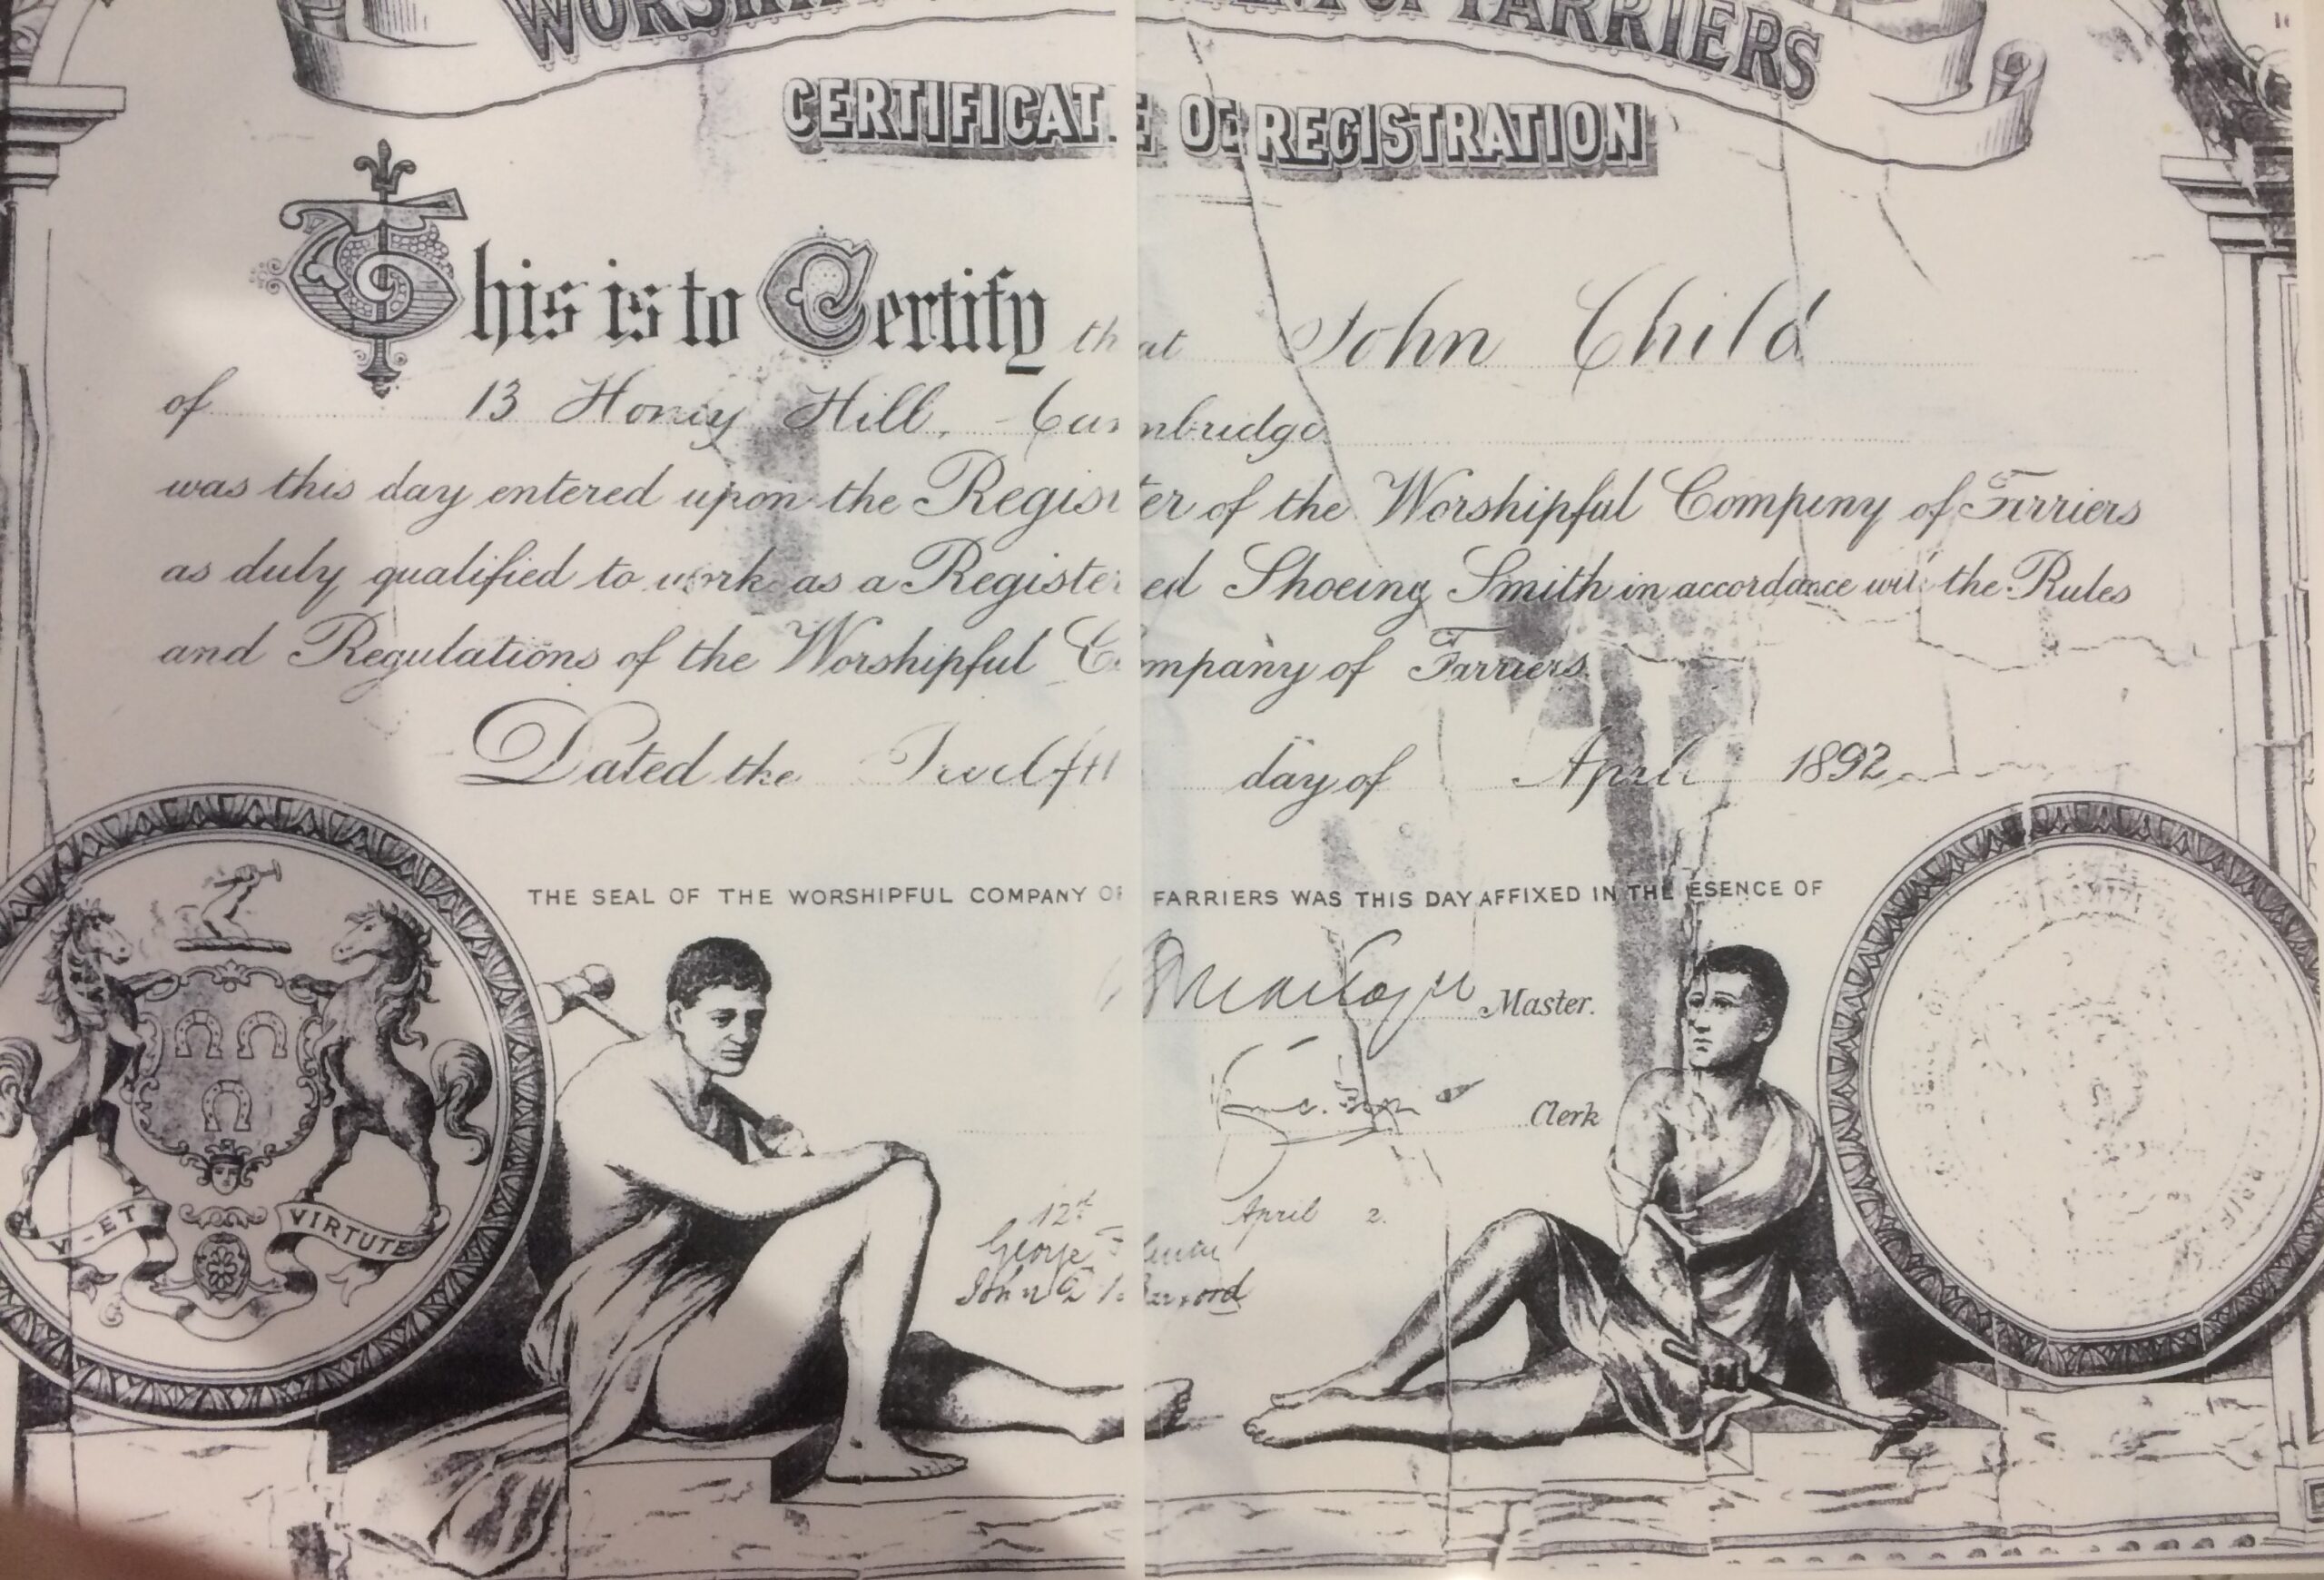 WORSHI OF FARRIERS
CERTIFICATE OF REGISTRATION
This is to Certify that John Child
of 13 Honey Hill, Cambridge
was this day entered upon the Register of the Worshipful Company of Farriers
as duly qualified to work as a Registered Shoeing Smith in accordance with the Rules
and Regulations of the Worshipful Company of Farriers.
Dated the Twelfth day of April 1892
THE SEAL OF THE WORSHIPFUL COMPANY OF FARRIERS WAS THIS DAY AFFIXED IN THE ESENCE OF
Master.
Clerk
12th April 2.
George
John
VI-ET VIRTUTE